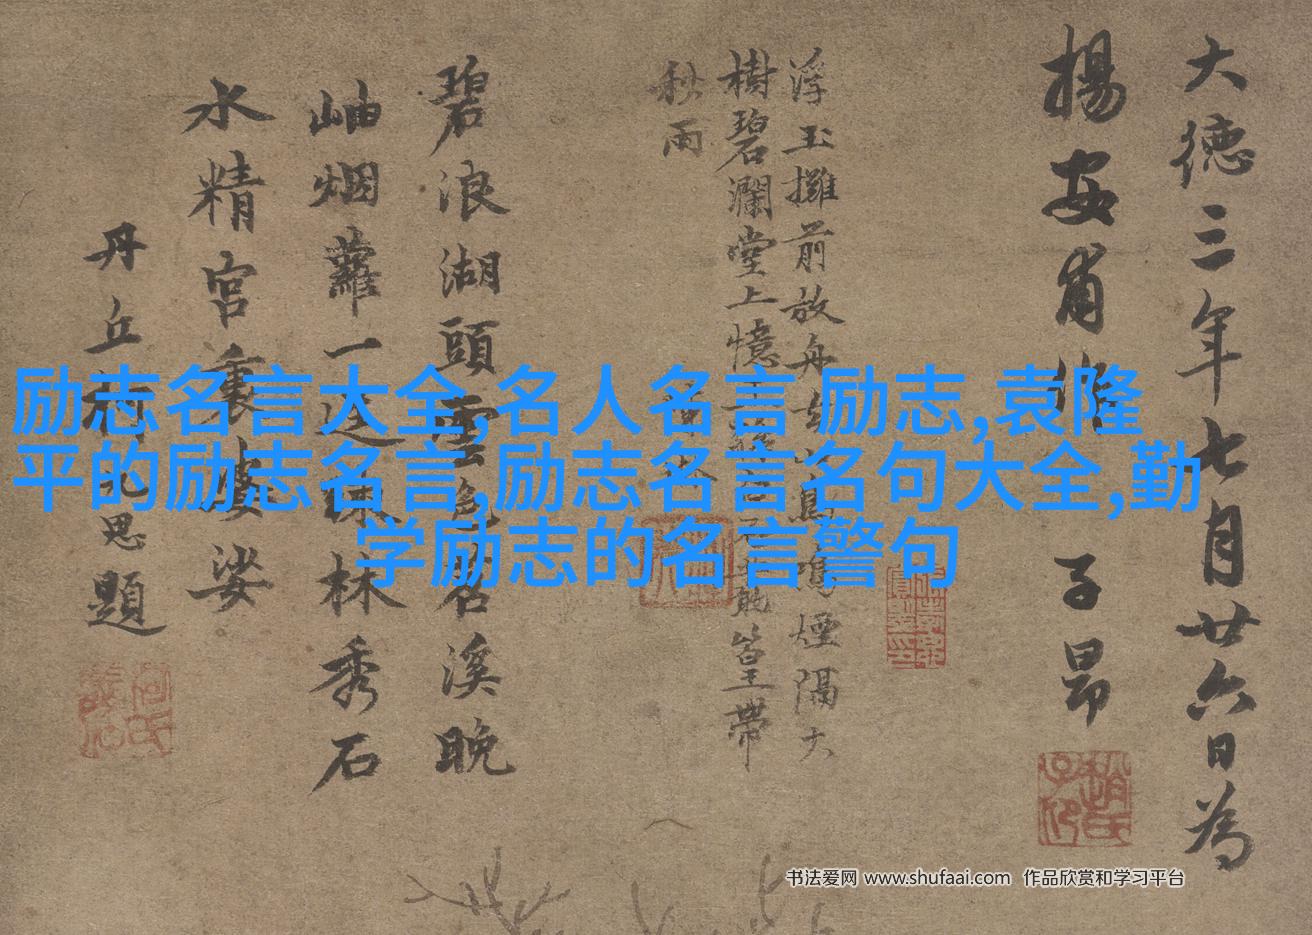 大德三年七月廿六日為
揚安甫作
子昂
浮玉攤前放舟去
鳥鳴煙隔大
樹碧瀾堂上憶王
篁帶
秋雨
碧浪湖頭雲色
茗溪晚
岫烟蘿一逕
林秀石
水精宮裏
娑
丹丘
思題
励志名言大全,名人名言 励志,袁隆
平的励志名言,励志名言名句大全,勤
学励志的名言警句
书法爱网 www.shufaai.com 作品欣赏和学习平台